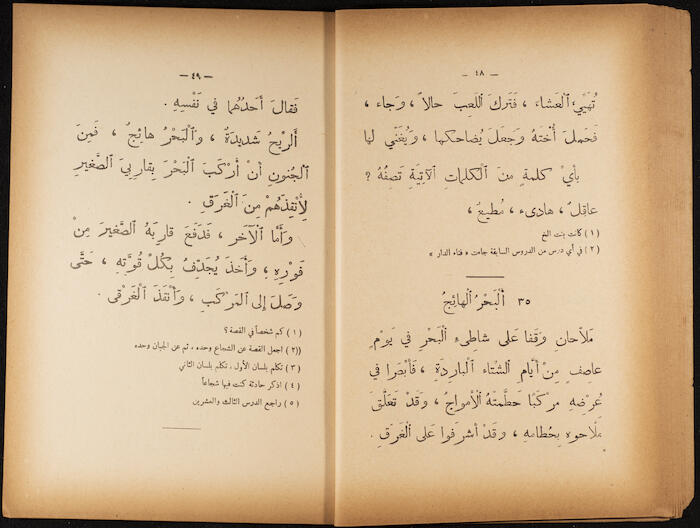 — ٤٨ —
تُهَيِّئُ ٱلْعَشَاءَ ، فَتَرَكَ ٱللَّعِبَ حَالاً ، وَجَاءَ ،
فَحَمَلَ أُخْتَهُ وَجَعَلَ يُضَاحِكُهَا ، وَيُغَنِّي لَهَا
بِأَيِّ كَلِمَةٍ مِنَ ٱلْكَلِمَاتِ ٱلْآتِيَةِ تَصِفُهُ ؟
عَاقِلٌ ، هَادِىءٌ ، مُطِيعٌ ،
( ١ ) كانت بنت الخ
( ٢ ) في أي درس من الدروس السابقة جاءت « فناء الدار »
٣٥ اَلْبَحْرُ ٱلْهَائِجُ
مَلاَّحَانِ وَقَفَا عَلَى شَاطِىءِ ٱلْبَحْرِ فِي يَوْمٍ
عَاصِفٍ مِنْ أَيَّامِ ٱلشِّتَاءِ ٱلْبَارِدَةِ ، فَأَبْصَرَا فِي
عُرْضِهِ مَرْكَبًا حَطَّمَتْهُ ٱلْأَمْوَاجُ ، وَقَدْ تَعَلَّقَ
مَلاَّحُوهُ بِحُطَامِهِ ، وَقَدْ أَشْرَفُوا عَلَى ٱلْغَرَقِ .
— ٤٩ —
فَقَالَ أَحَدُهُمَا فِي نَفْسِهِ .
أَلرِّيحُ شَدِيدَةٌ ، وَٱلْبَحْرُ هَائِجٌ ، فَمِنَ
ٱلْجُنُونِ أَنْ أَرْكَبَ ٱلْبَحْرَ بِقَارِبِيَ ٱلصَّغِيرِ
لِأُنْقِذَهُمْ مِنَ ٱلْغَرَقِ .
وَأَمَّا ٱلْآخَرُ ، فَدَفَعَ قَارِبَهُ ٱلصَّغِيرَ مِنْ
فَوْرِهِ ، وَأَخَذَ يُجَدِّفُ بِكُلِّ قُوَّتِهِ ، حَتَّى
وَصَلَ إِلَى ٱلْمَرْكَبِ ، وَأَنْقَذَ ٱلْغَرْقَى .
( ١ ) كم شخصاً في القصة ؟
(( ٢ ) اجعل القصة عن الشجاع وحده ، ثم عن الجبان وحده
( ٣ ) تكلم بلسان الأول ، تكلم بلسان الثاني
( ٤ ) اذكر حادثة كنت فيها شجاعاً
( ٥ ) راجع الدرس الثالث والعشرين